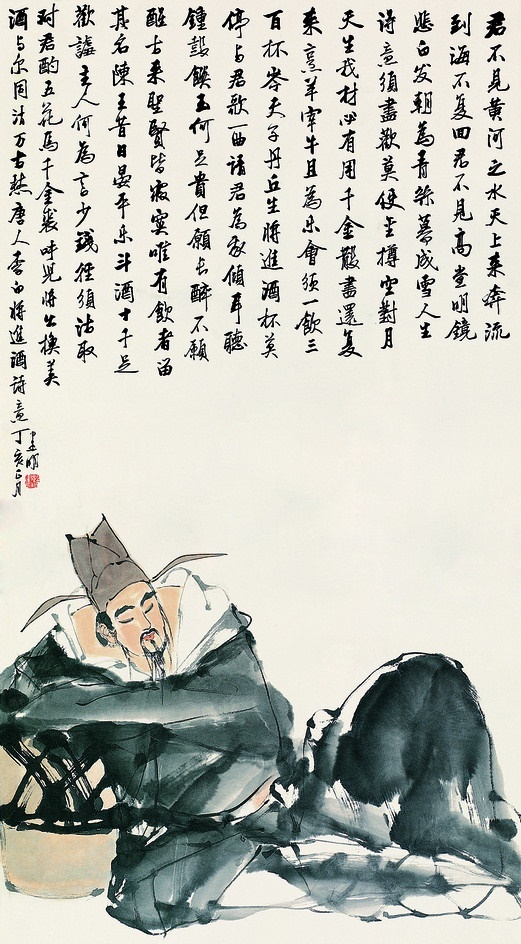 君不見黄河之水天上来奔流
到海不复回君不見高堂明鏡
悲白发朝為青丝暮成雪人生
得意須盡歡莫使金樽空對月
天生我材必有用千金散盡還复
来烹羊宰牛且為乐會須一飲三
百杯岑夫子丹丘生將進酒杯莫
停与君歌一曲請君為我傾耳聽
鐘鼓饌玉何足貴但願长醉不願
醒古来聖賢皆寂寞唯有飲者留
其名陳王昔日晏平乐斗酒十千足
歡謔主人何為言少錢徑須沽取
对君酌五花馬千金裘呼児將出換美
酒与尔同沽万古愁唐人李白将進酒诗意丁亥正月